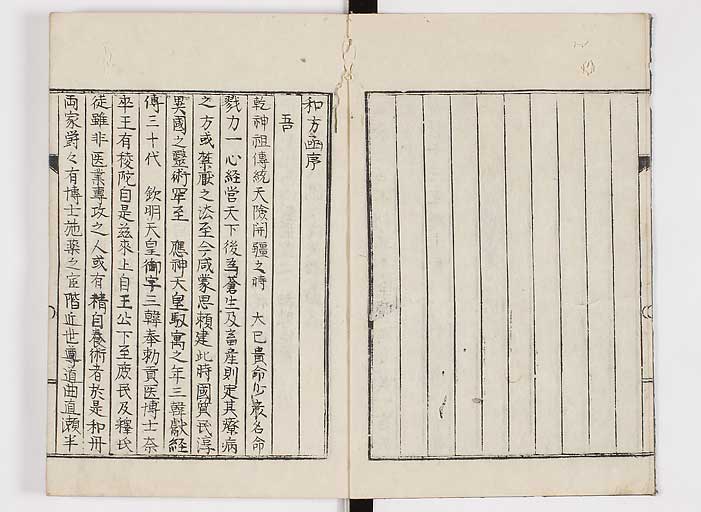 和方凾序
吾
乾神祖傳統天險開疆之時　大己貴命少彥名命
戮力一心經営天下後為蒼生及畜産則定其療病
之方或禁厭之法至今咸蒙思頼建此時國質民淳
異國之毉術罕至　應神天皇馭寓之年三韓獻経
傳三十代　欽明天皇御宇三韓奉勅貢医博士奈
率王有㥄陀自是玆来上自王公下至庶民及釋氏
徒雖非医業専攻之人或有精自養術者於是和丹
両家爵々有博士施薬之官階近世尊道曲直瀬半